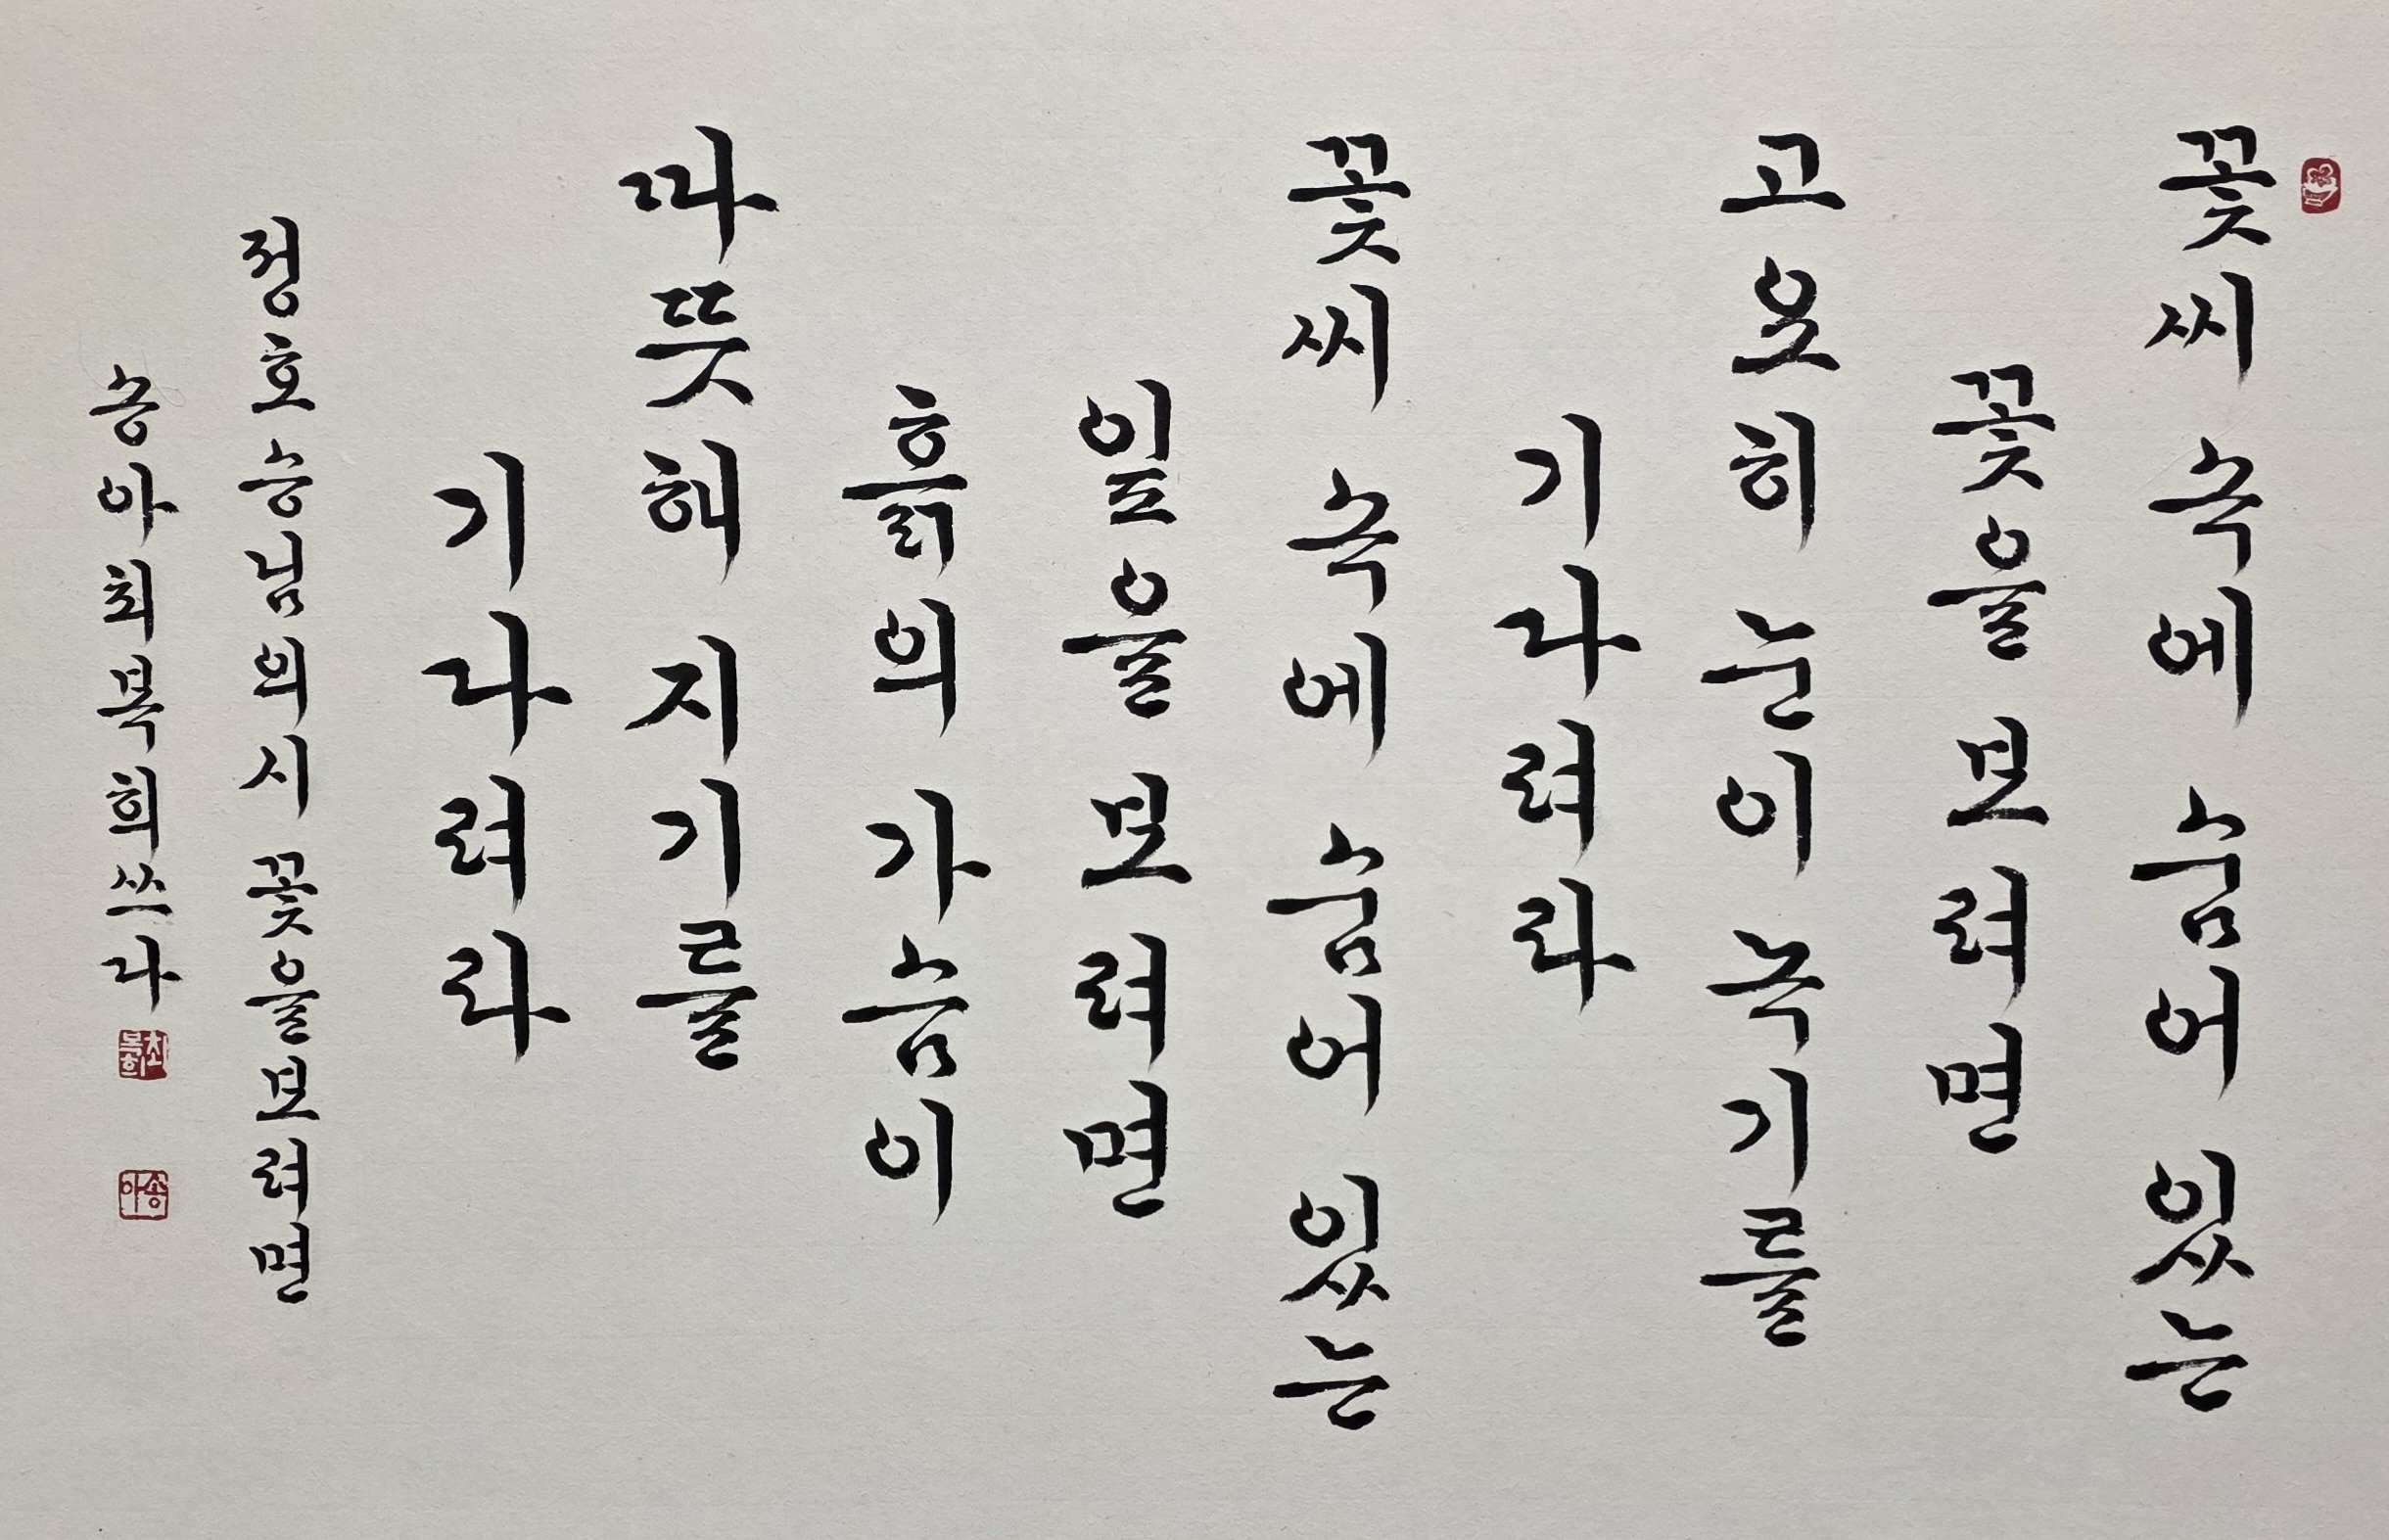 꽃씨 속에 숨어 있는
꽃을 보려면
고요히 눈이 녹기를
기다려라
꽃씨 속에 숨어 있는
잎을 보려면
흙의 가슴이
따뜻해 지기를
기다려라
정호승님의 시 꽃을 보려면
송아 최복희 쓰다
최복희
송아